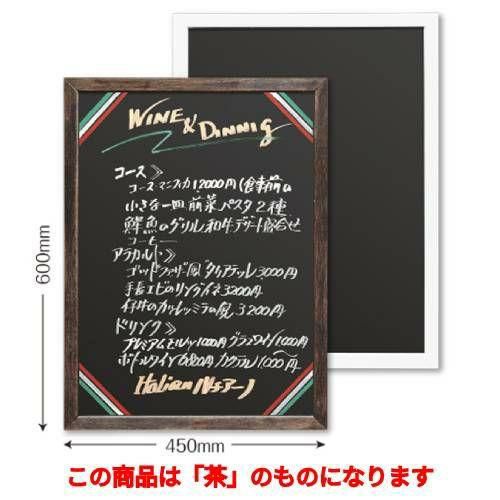 WINE & DINNIG
コース》
コースマニフィカ 12000円(食事前の
小さな一皿 前菜 パスタ2種
鮮魚のグリル 和牛 デザート盛合せ
コーヒー
アラカルト》
ゴッドファザー風 3000円
手長エビのリングイネ 3200円
仔牛のカツレツミラノ風 3200円
ドリンク》
プレミアムモルツ 1000円 グラスワイン 1000円
ボトルワイン 6800円 カクテル 1000円
Italian
600mm
450mm
この商品は「茶」のものになります